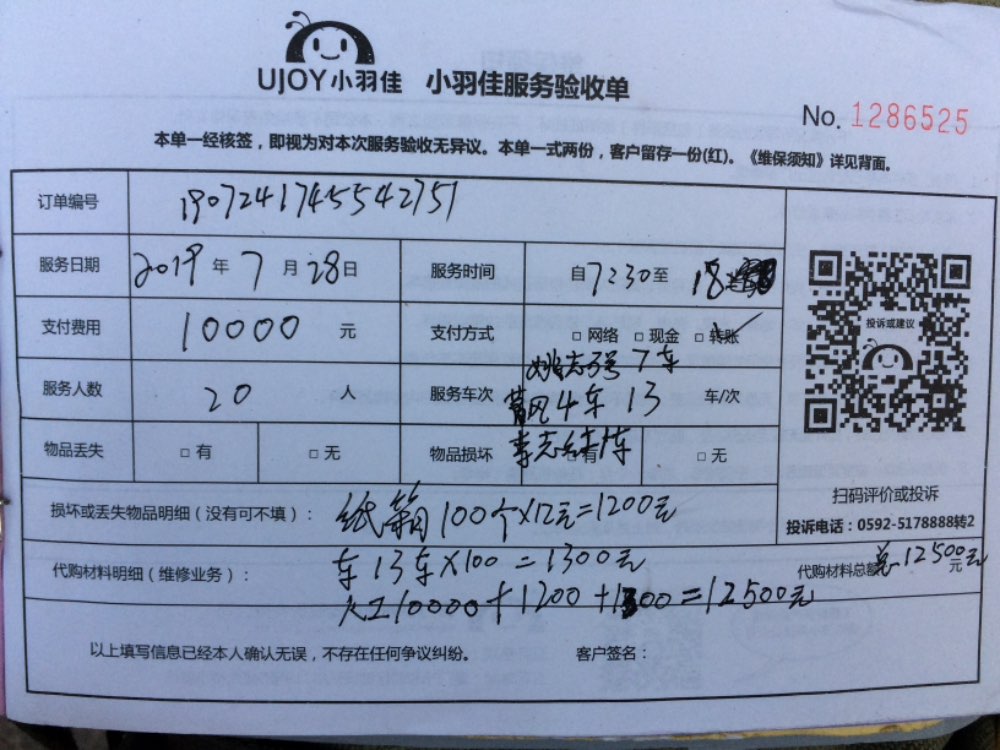 UJOY小羽佳 小羽佳服务验收单
No. 1286525
本单一经核签，即视为对本次服务验收无异议。本单一式两份，客户留存一份(红)。《维保须知》详见背面。
订单编号 1907241745542751
服务日期 2019 年 7 月 28 日 服务时间 自 7:30 至 18
支付费用 10000 元 支付方式 □ 网络 □ 现金 □ 转账 ✓
姚志强 7车
服务人数 20 人 服务车次 4车 13 车/次
物品丢失 □ 有 □ 无 物品损坏 李志 □ 有 车 □ 无
投诉或建议
扫码评价或投诉
投诉电话：0592-5178888转2
损坏或丢失物品明细（没有可不填）： 纸箱100个×12元=1200元
代购材料明细（维修业务）： 车13车×100=1300元
代购材料总额 总12500元 元
人工10000+1200+1300=12500元
以上填写信息已经本人确认无误，不存在任何争议纠纷。 客户签名：